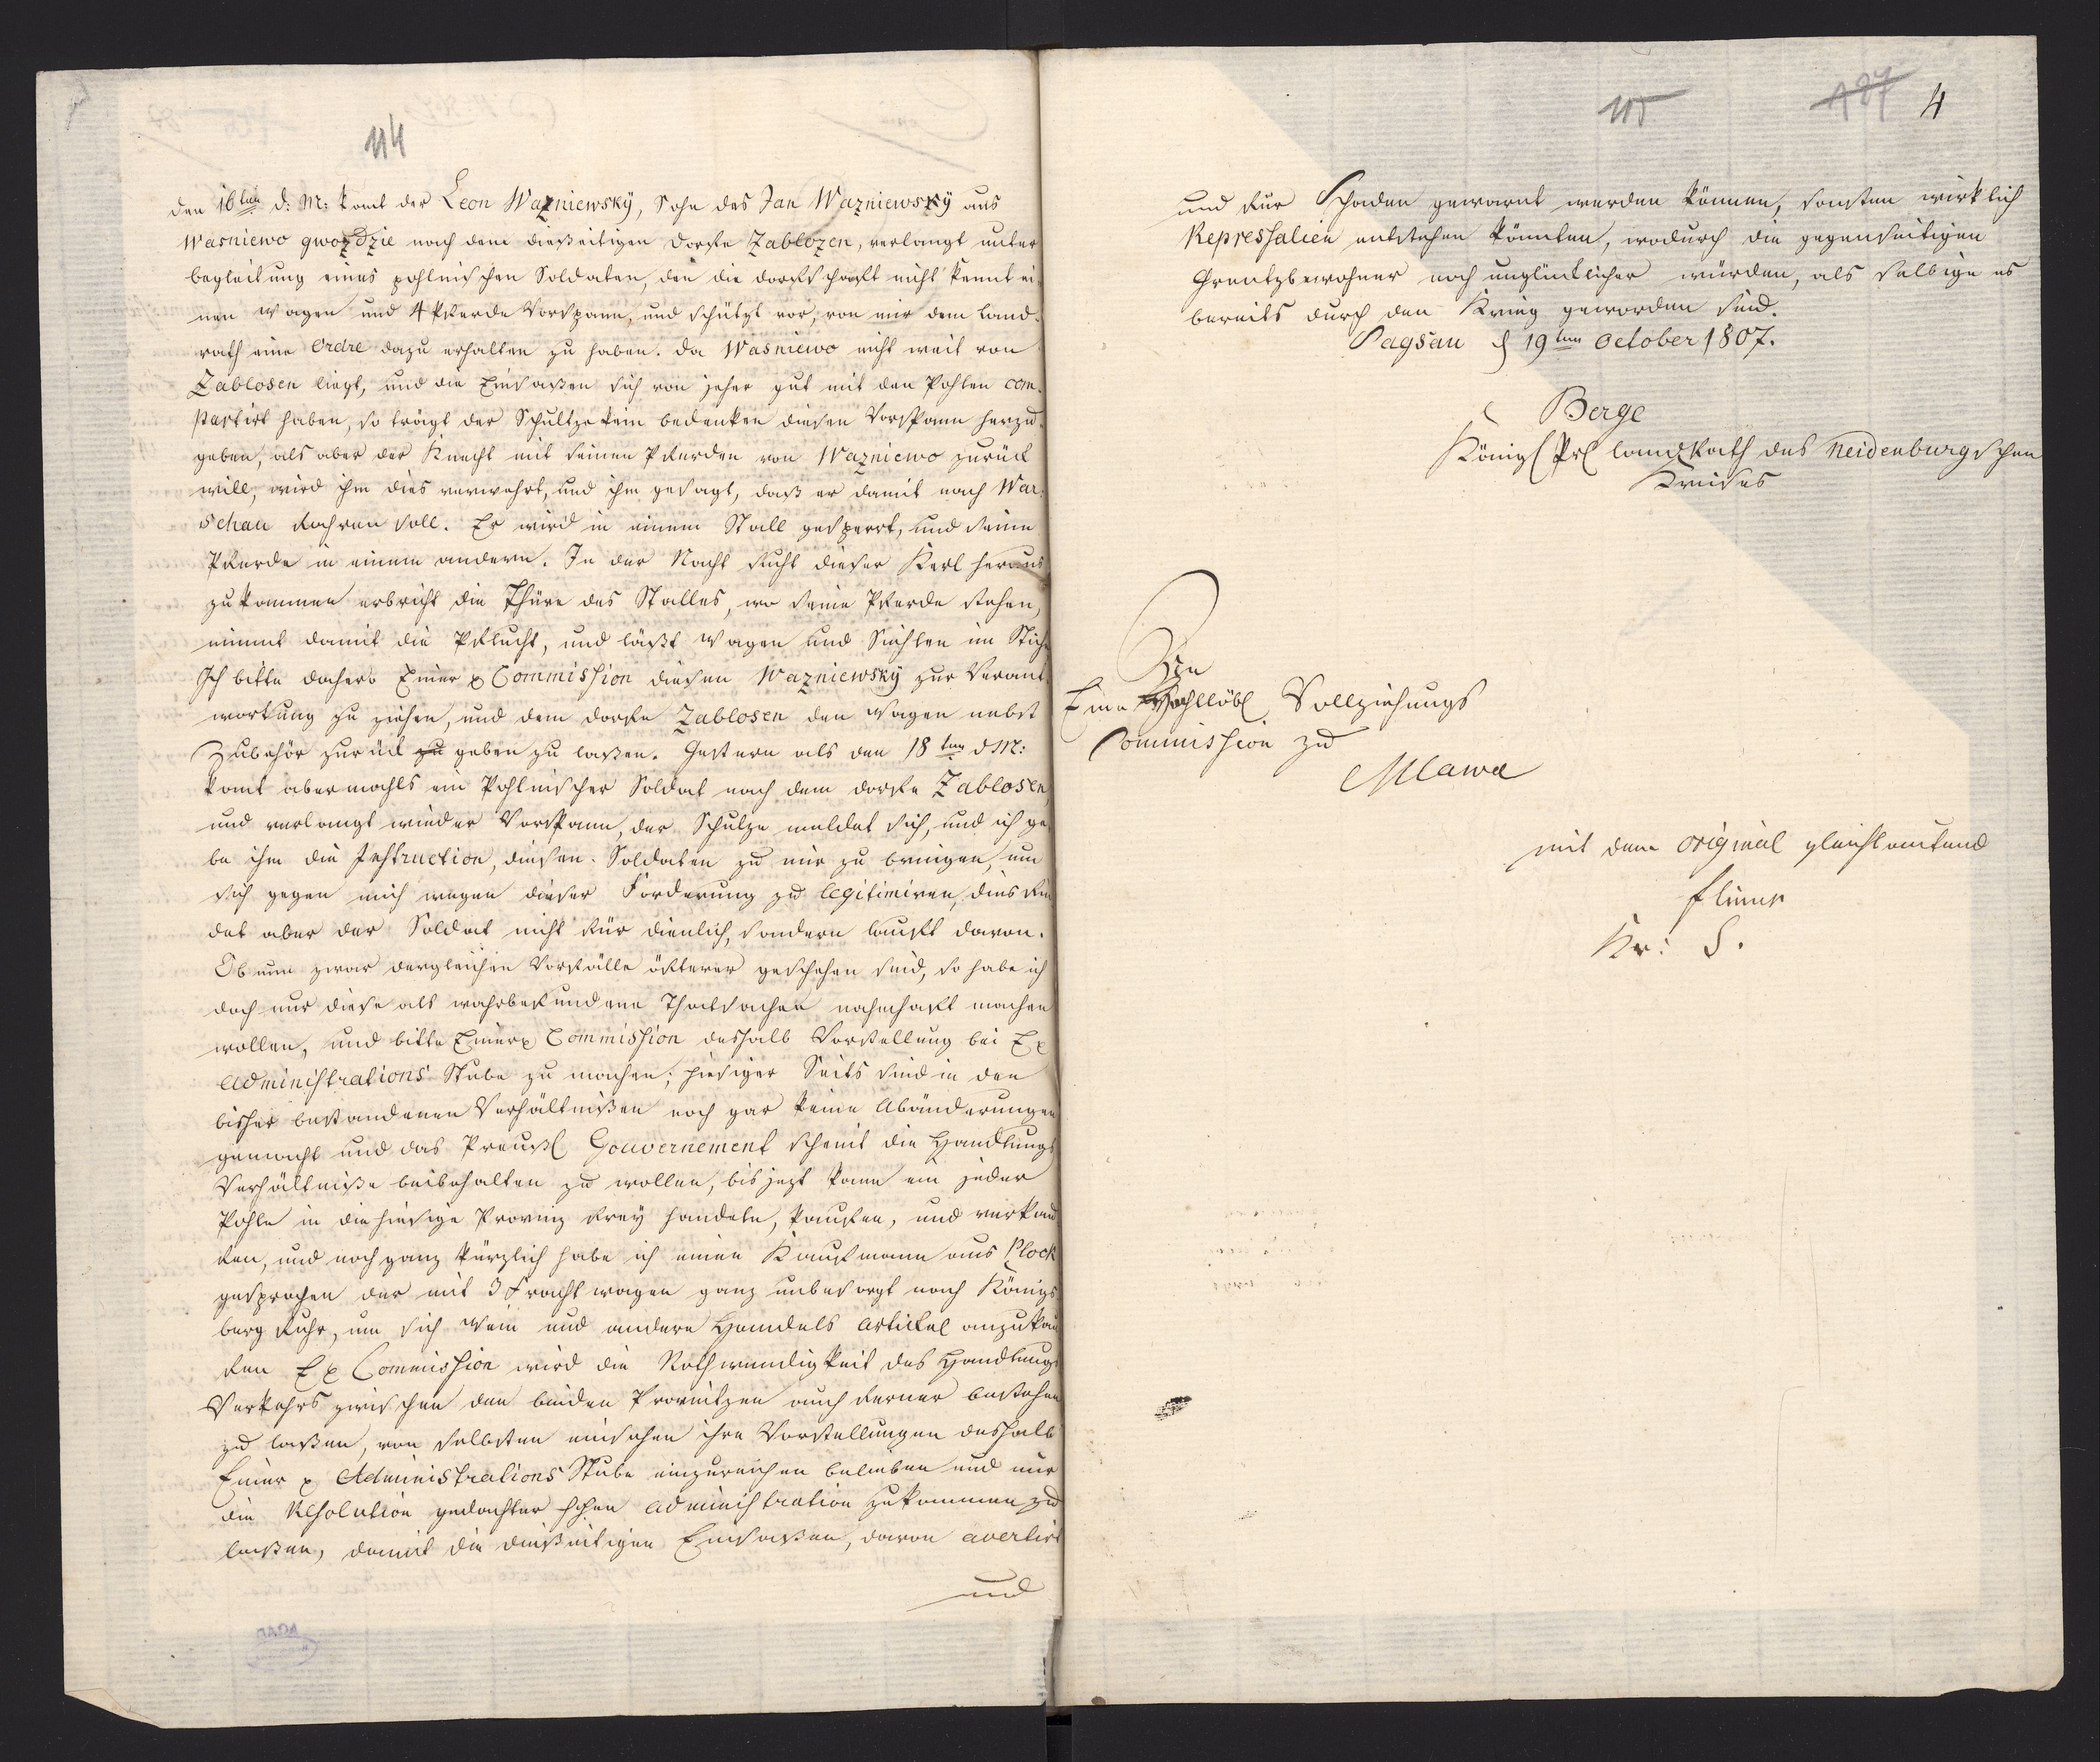 114
den 16ten d: M: komt der Leon Wazniewsky, Sohn des Jan Wazniewosky aus
Wasniewo gwozdzie nach dem dießeitigen Dorfe Zablozen, verlangt unter
begleitung eines pohlnischen Soldaten, den die dorfschaft nicht kennt ei¬
nen Wagen und 4 Pferde Vorspann, und schützt vor, von mir dem Land¬
rath eine Ordre dazu erhalten zu haben. Da Wasniewo nicht weit von
Zablosen liegt, und die Einsaßen sich von jeher gut mit den Pohlen com¬
portirt haben, so trägt der Schultze kein bedenken diesen Vorspann herzu¬
geben, als aber der Knecht mit seinen Pferden von Wazniewo zurück
will, wird ihm dies verwehrt, und ihm gesagt, daß er damit nach War¬
schau fahren soll. Er wird in einem Stall gesperrt, und seine
Pferde in einem andern. In der Nacht sucht dieser Kerl heraus
zukommen erbricht die Thüre des Stalles, wo seine Pferde stehen,
nimmt damit die Pflucht, und läßt Wagen und Siehlen im Stich
Ich bitte dahero Einer p Commission diesen Wazniewsky zur Verant¬
wortung zu ziehen, und dem dorfe Zablosen den Wagen nebst
Zubehör zurück zu geben zu laßen. Gestern als den 18ten d M:
komt abermahls ein Pohlnischer Soldat nach dem dorfe Zablosen,
und verlangt wieder Vorspann, der Schulze meldet sich, und ich ge¬
be ihm die Instruction, diesen Soldaten zu mir zu bringen, um
sich gegen mich wegen dieser Forderung zu legitimiren, dies fin
det aber der Soldat nicht für dienlich, sondern lauft davon.
Ob nun zwar dergleichen Vorfälle öfterer geschehen sind, so habe ich
doch nur diese als wahrbefundene Thatsachen nahmhaft machen
wollen, und bitte Einer p Commission deshalb Vorstellung bei E p
Administrations Stube zu machen; hiesiger Seits sind in den
bisher bestandenen Verhältnißen noch gar keine Abänderungen
gemacht und das Preuß Gouvernement scheint die Handlungs
Verhältniße beibehalten zu wollen, bis jezt kann ein jeder
Pohle in die hiesige Provinz frey handeln, kaufen, und verkau
fen, und noch ganz kürzlich habe ich einen Kaufmann aus Plock
gesprochen der mit 3 Fracht wagen ganz unbesorgt nach Königs
berg fuhr, um sich Wein und andere Handels Artickel anzukau
fen E p Commission wird die Nothwendigkeit des Handlungs
Verkehrs zwischen den beiden Provintzen auch ferner bestehen
zu laßen, von selbsten einsehen ihre Vorstellungen deshalb
Einer p Administrations Stube einzureichen belieben und mir
die Resolution gedachter administration zukommen zu
laßen, damit die dießeitigen Einsaßen, davon avertirt
und
115
187
4
und für Schaden gewarnt werden können, sonsten wirklich
Repressalien entstehen könnten, wodurch die gegenseitigen
Grentzbewohner noch unglücklicher würden, als selbige es
bereits durch den Krieg geworden sind.
Sagsau d 19ten October 1807.
Berge
Königl Prl LandRath des Neidenburgschen
Kreises
An
Eine Hochlöbl Vollziehungs
Commission zu
Mlawa
mit dem Original gleichlautend
Kr: S.